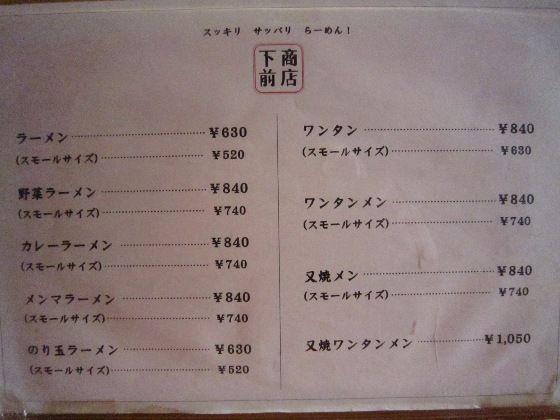 スッキリ サッパリ らーめん!
下前商店
ラーメン ¥630
(スモールサイズ) ¥520
野菜ラーメン ¥840
(スモールサイズ) ¥740
カレーラーメン ¥840
(スモールサイズ) ¥740
メンマラーメン ¥840
(スモールサイズ) ¥740
のり玉ラーメン ¥630
(スモールサイズ) ¥520
ワンタン ¥840
(スモールサイズ) ¥630
ワンタンメン ¥840
(スモールサイズ) ¥740
叉焼メン ¥840
(スモールサイズ) ¥740
叉焼ワンタンメン ¥1,050